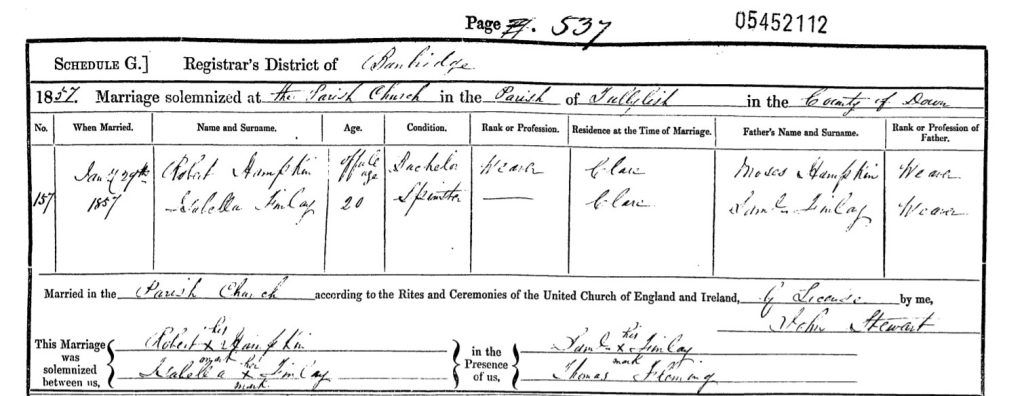 Page 77. 537 05452112
SCHEDULE G.] Registrar's District of Banbridge
1857. Marriage solemnized at the Parish Church in the Parish of Tullylish in the County of Down
No. When Married. Name and Surname. Age. Condition. Rank or Profession. Residence at the Time of Marriage. Father's Name and Surname. Rank or Profession of Father.
Jany 29th Robert Hampkin of full age Bachelor Weaver Clare Moses Hampkin Weaver
157 1857 Isabella Finlay 20 Spinster — Clare Saml Finlay Weaver
Married in the Parish Church according to the Rites and Ceremonies of the United Church of England and Ireland, By License by me,
John Stewart
This Marriage was solemnized between us, Robert his x mark Hampkin in the Presence of us, Saml his x mark Finlay
Isabella her x mark Finlay Thomas Fleming